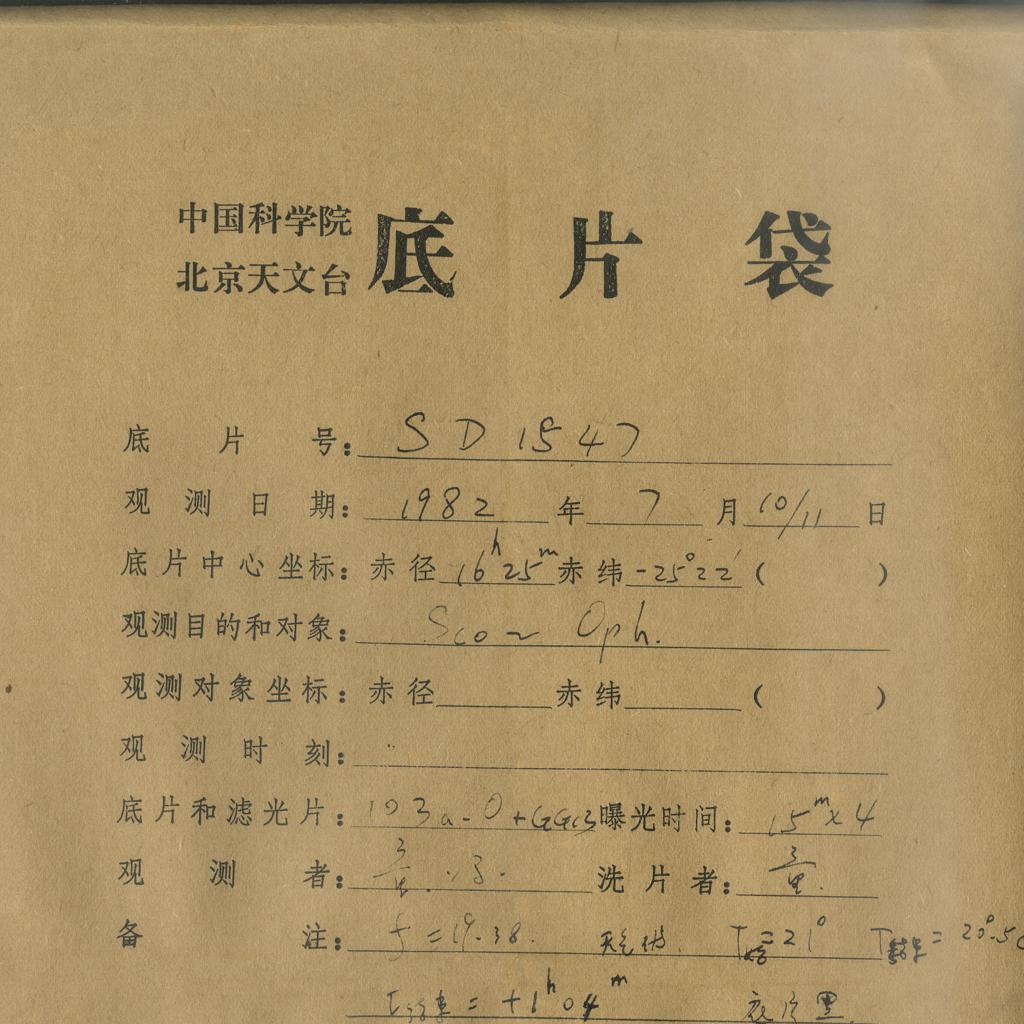 中国科学院
北京天文台 底片袋
底片号: SD1547
观测日期: 1982 年 7 月 10/11 日
底片中心坐标: 赤径 16h25m 赤纬 -25°22′ ( )
观测目的和对象: Sco ~ Oph.
观测对象坐标: 赤径 赤纬 ( )
观测时刻:
底片和滤光片: 103a-O+GG13 曝光时间: 15m×4
观测者: 洗片者:
备注: f=19.38. T =21° T =20°.5
T = +1h04m 底片